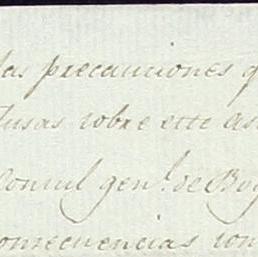 las precauciones q
lusas sobre este as
Consul gen.l de Bog
consecuencias con